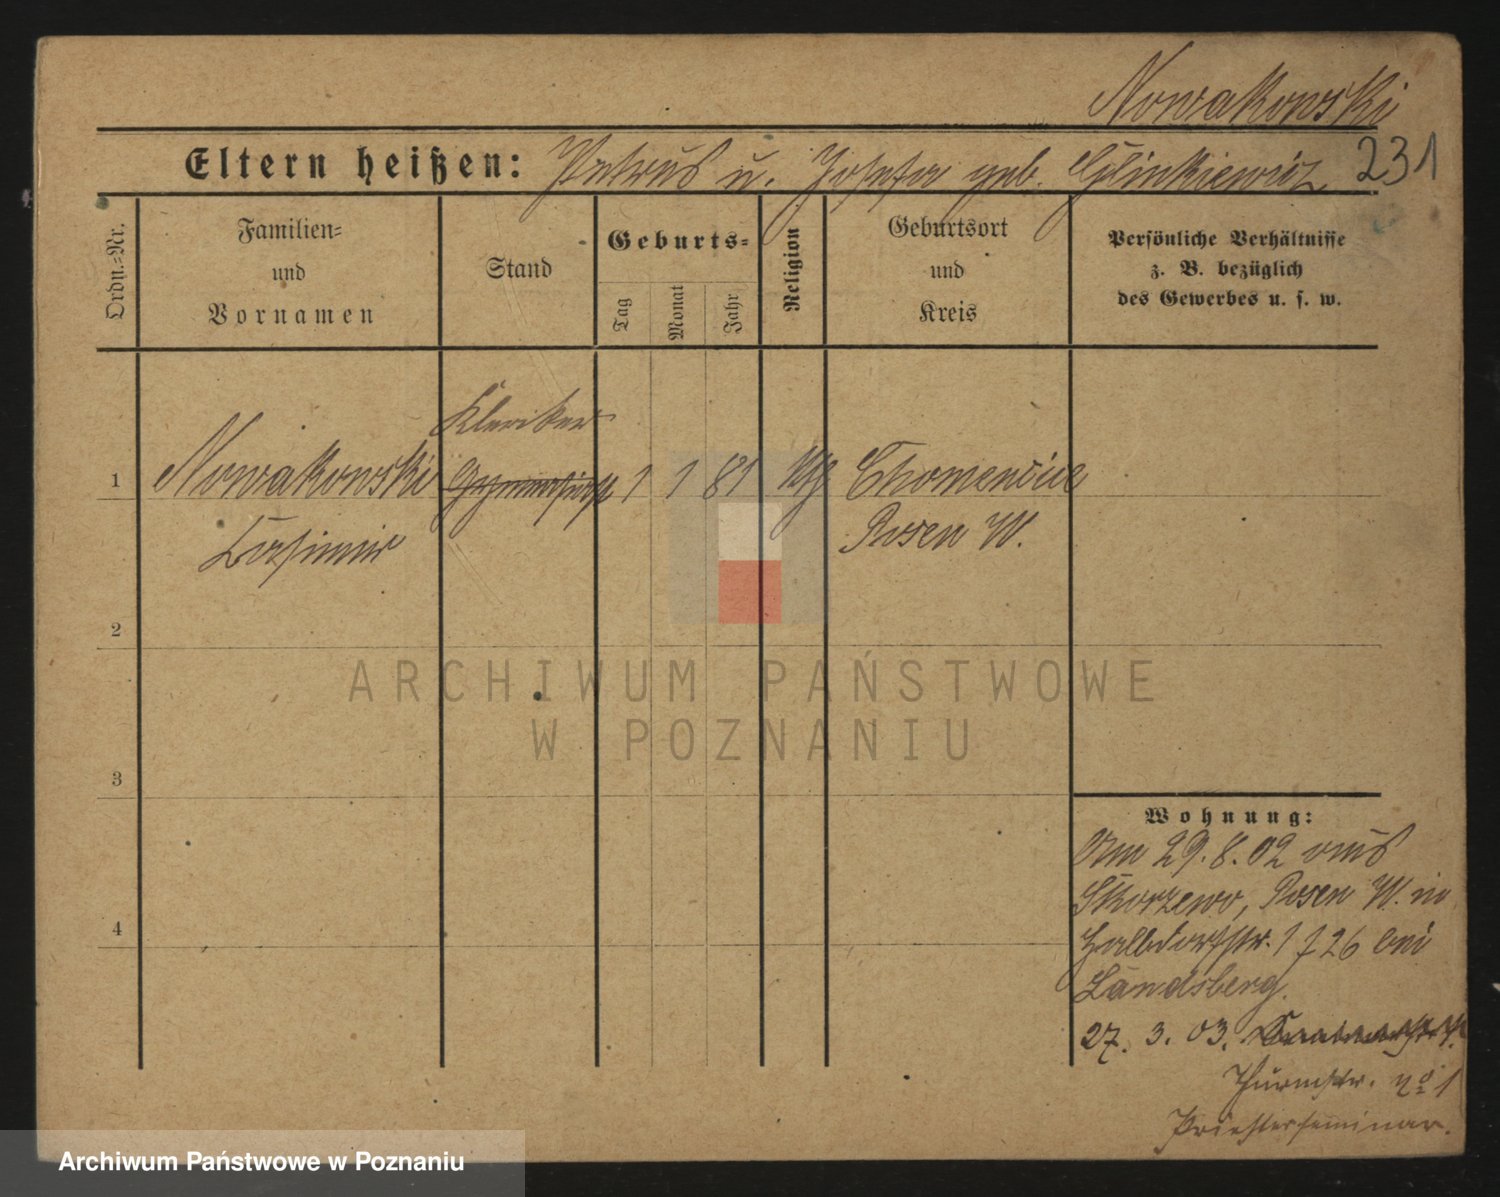 Nowakowski
Eltern heißen: Petrus u. Josefa geb. Glinkiewicz 231
Ordn.=Nr.
Familien=
und
Vornamen
Stand
Geburts=
Tag
Monat
Jahr
Religion
Geburtsort
und
Kreis
Persönliche Verhältnisse
z. B. bezüglich
des Gewerbes u. s. w.
Kleriker
1 Nowakowski 1 1 81 kth Chomencice
Casimir Posen W.
2
3
4
Wohnung:
Am 29. 8. 02 aus
Skorzewo, Posen W. in
Halbdorfstr. 17 26 bei
Landsberg.
27. 3. 03.
Thurmstr. No 1
Priesterseminar.
ARCHIWUM PAŃSTWOWE
W POZNANIU
Archiwum Państwowe w Poznaniu